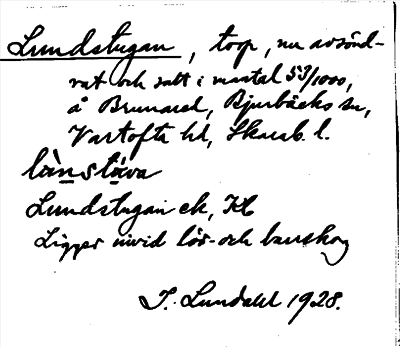 Lundstugan, torp, nu avsönd-
rat och satt i mantal 53/1000,
å Brunared, Bjurbäcks sn,
Vartofta hd, Skarab. l.
lùnstùva
Lundstugan ek, Kbl
Ligger invid löv- och barrskog
I. Lundahl 1928.